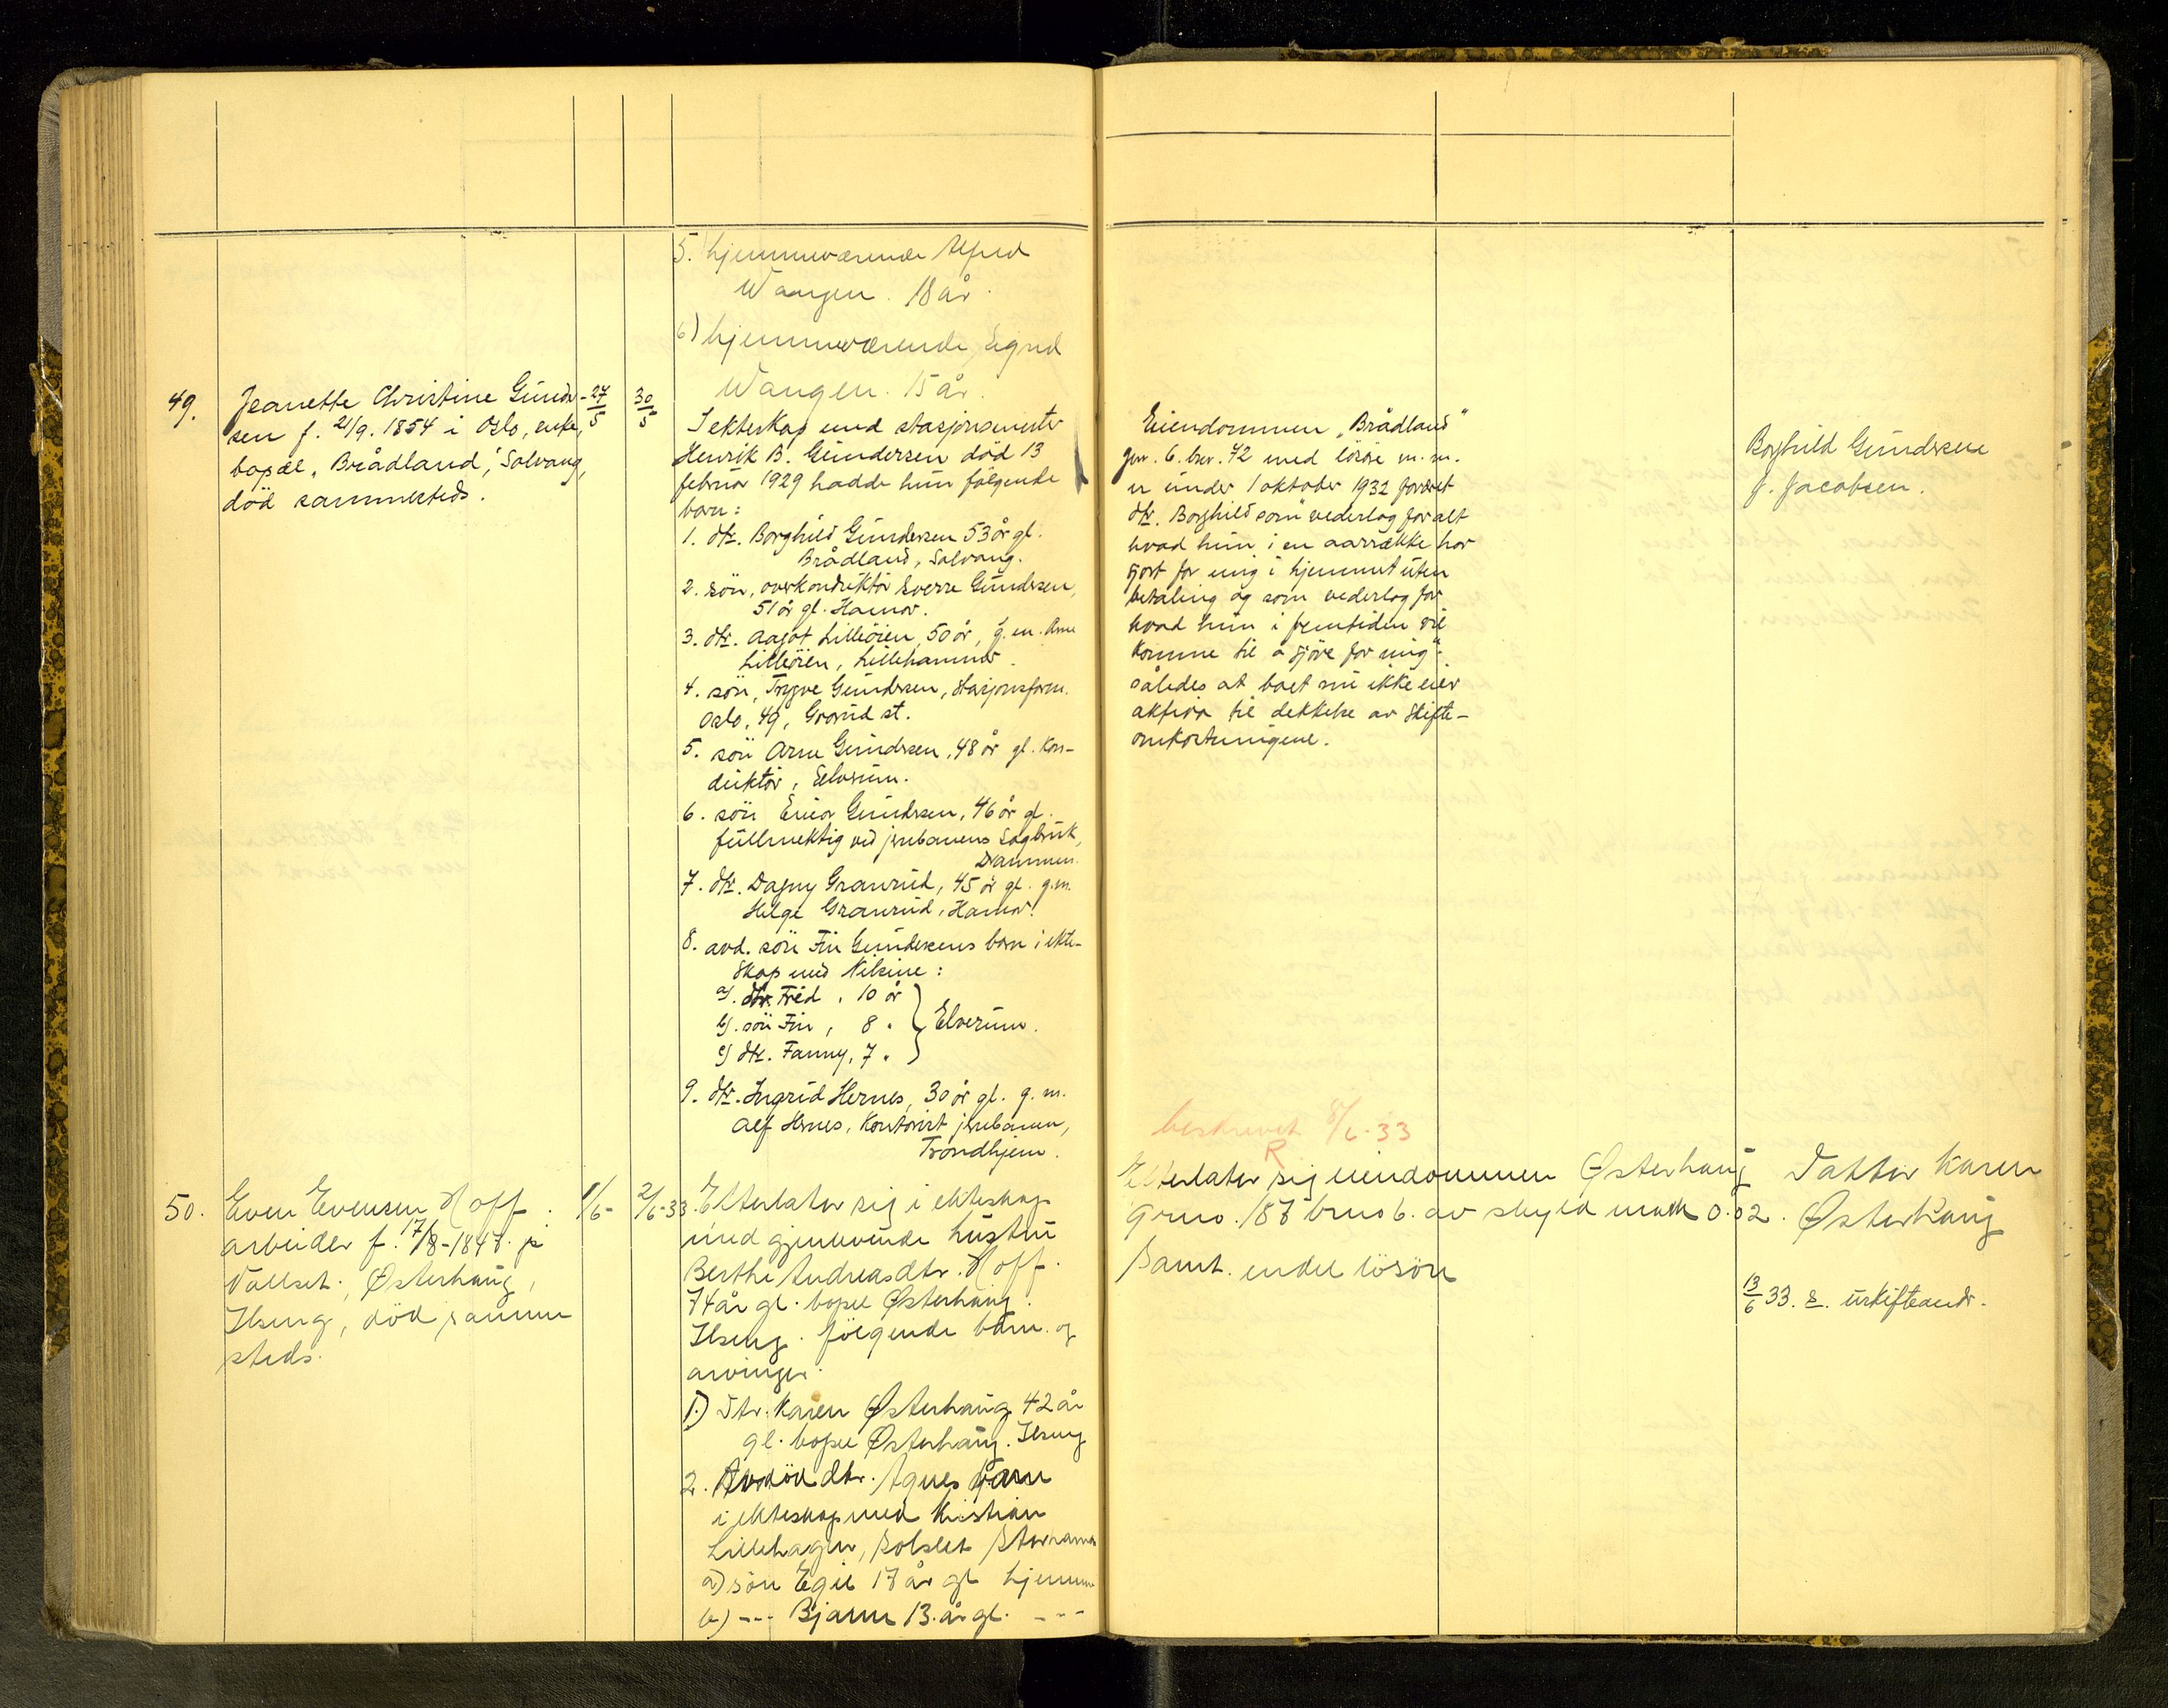 5. hjemmeværende Alfred
Wangen. 18 år.
6) hjemmeværende, Sigrid
Wangen. 15 år.
49.
Jeanette Christine Gunder-
sen f. 21/9. 1854 i Oslo, enke,
bopæl "Brådland", Solvang,
död sammesteds.
27/5
30/5
I ekteskap med stasjonsmester
Henrik B. Gundersen död 13
februar 1929 hadde hun følgende
barn:
1. dtr. Borghild Gundersen 53 år gl.
Brådland, Solvang.
2. sön, overkonduktör Sverre Gundersen,
51 år gl. Hamar.
3. dtr. Aagot Lilleöien, 50 år, g. m. Arne
Lilleöien, Lillehammer.
4. sön, Trygve Gundersen, stasjonsform.
Oslo, 49, Grorud st.
5. sön Arne Gundersen, 48 år gl. kon-
duktör, Elverum.
6. sön Einar Gundersen, 46 år gl.
fullmektig ved jernbanens Sagbruk,
Drammen.
7. dtr. Dagny Granrud, 45 år gl. g.m.
Helge Granrud, Hamar.
8. avd. sön Fin Gundersens barn i ekte-
skap med Nilsine:
a). dtr. Fred, 10 år
b). sön Fin, 8 "
Elverum.
c) dtr. Fanny, 7 "
9. dtr. Ingrid Hernes, 30 år gl. g. m.
Alf Hernes, kontorist jernbanen,
Trondhjem.
Eiendommen "Brådland"
gnr. 6. bnr. 42 med lösöre m. m.
er under 1 oktober 1932 foræret
dtr. Borghild som "vederlag for alt
hvad hun i en aarrække har
gjort for mig i hjemmet uten
betaling og som vederlag for
hvad hun i fremtiden vil
komme til å gjöre for mig";
således at boet nu ikke eier
aktiva til dekkelse av skifte-
omkostningene.
Borghild Gundersen
f. Jacobsen.
50.
Even Evensen Hoff.
arbeider f. 17/8-1847. på
Vallset. Østerhaug,
Ilseng, död samme
steds.
1/6-
2/6-33.
Efterlater sig i ekteskap
med gjenlevende hustru
Berthe Andreasdtr. Hoff.
74 år gl. bopel Østerhaug.
Ilseng. følgende barn. og
arvinger.
1.) Dtr. Karen Østerhaug 42 år
gl. bopel Østerhaug. Ilseng
2. Avdöd dtr. Agnes barn
i ekteskap med Kristian
Lillehagen, Solslet Storhamar
a) sön Egil 17 år gl hjemme
b) --- Bjarne 13. år gl. ---
beskrevet 8/6-33
R
Efterlater sig eiendommen Østerhaug
grno. 187 brno 6. av skyld mark 0.02.
samt. endel lösöre
Datter Karen
Østerhaug
13/6 33. s. uskifteandr.